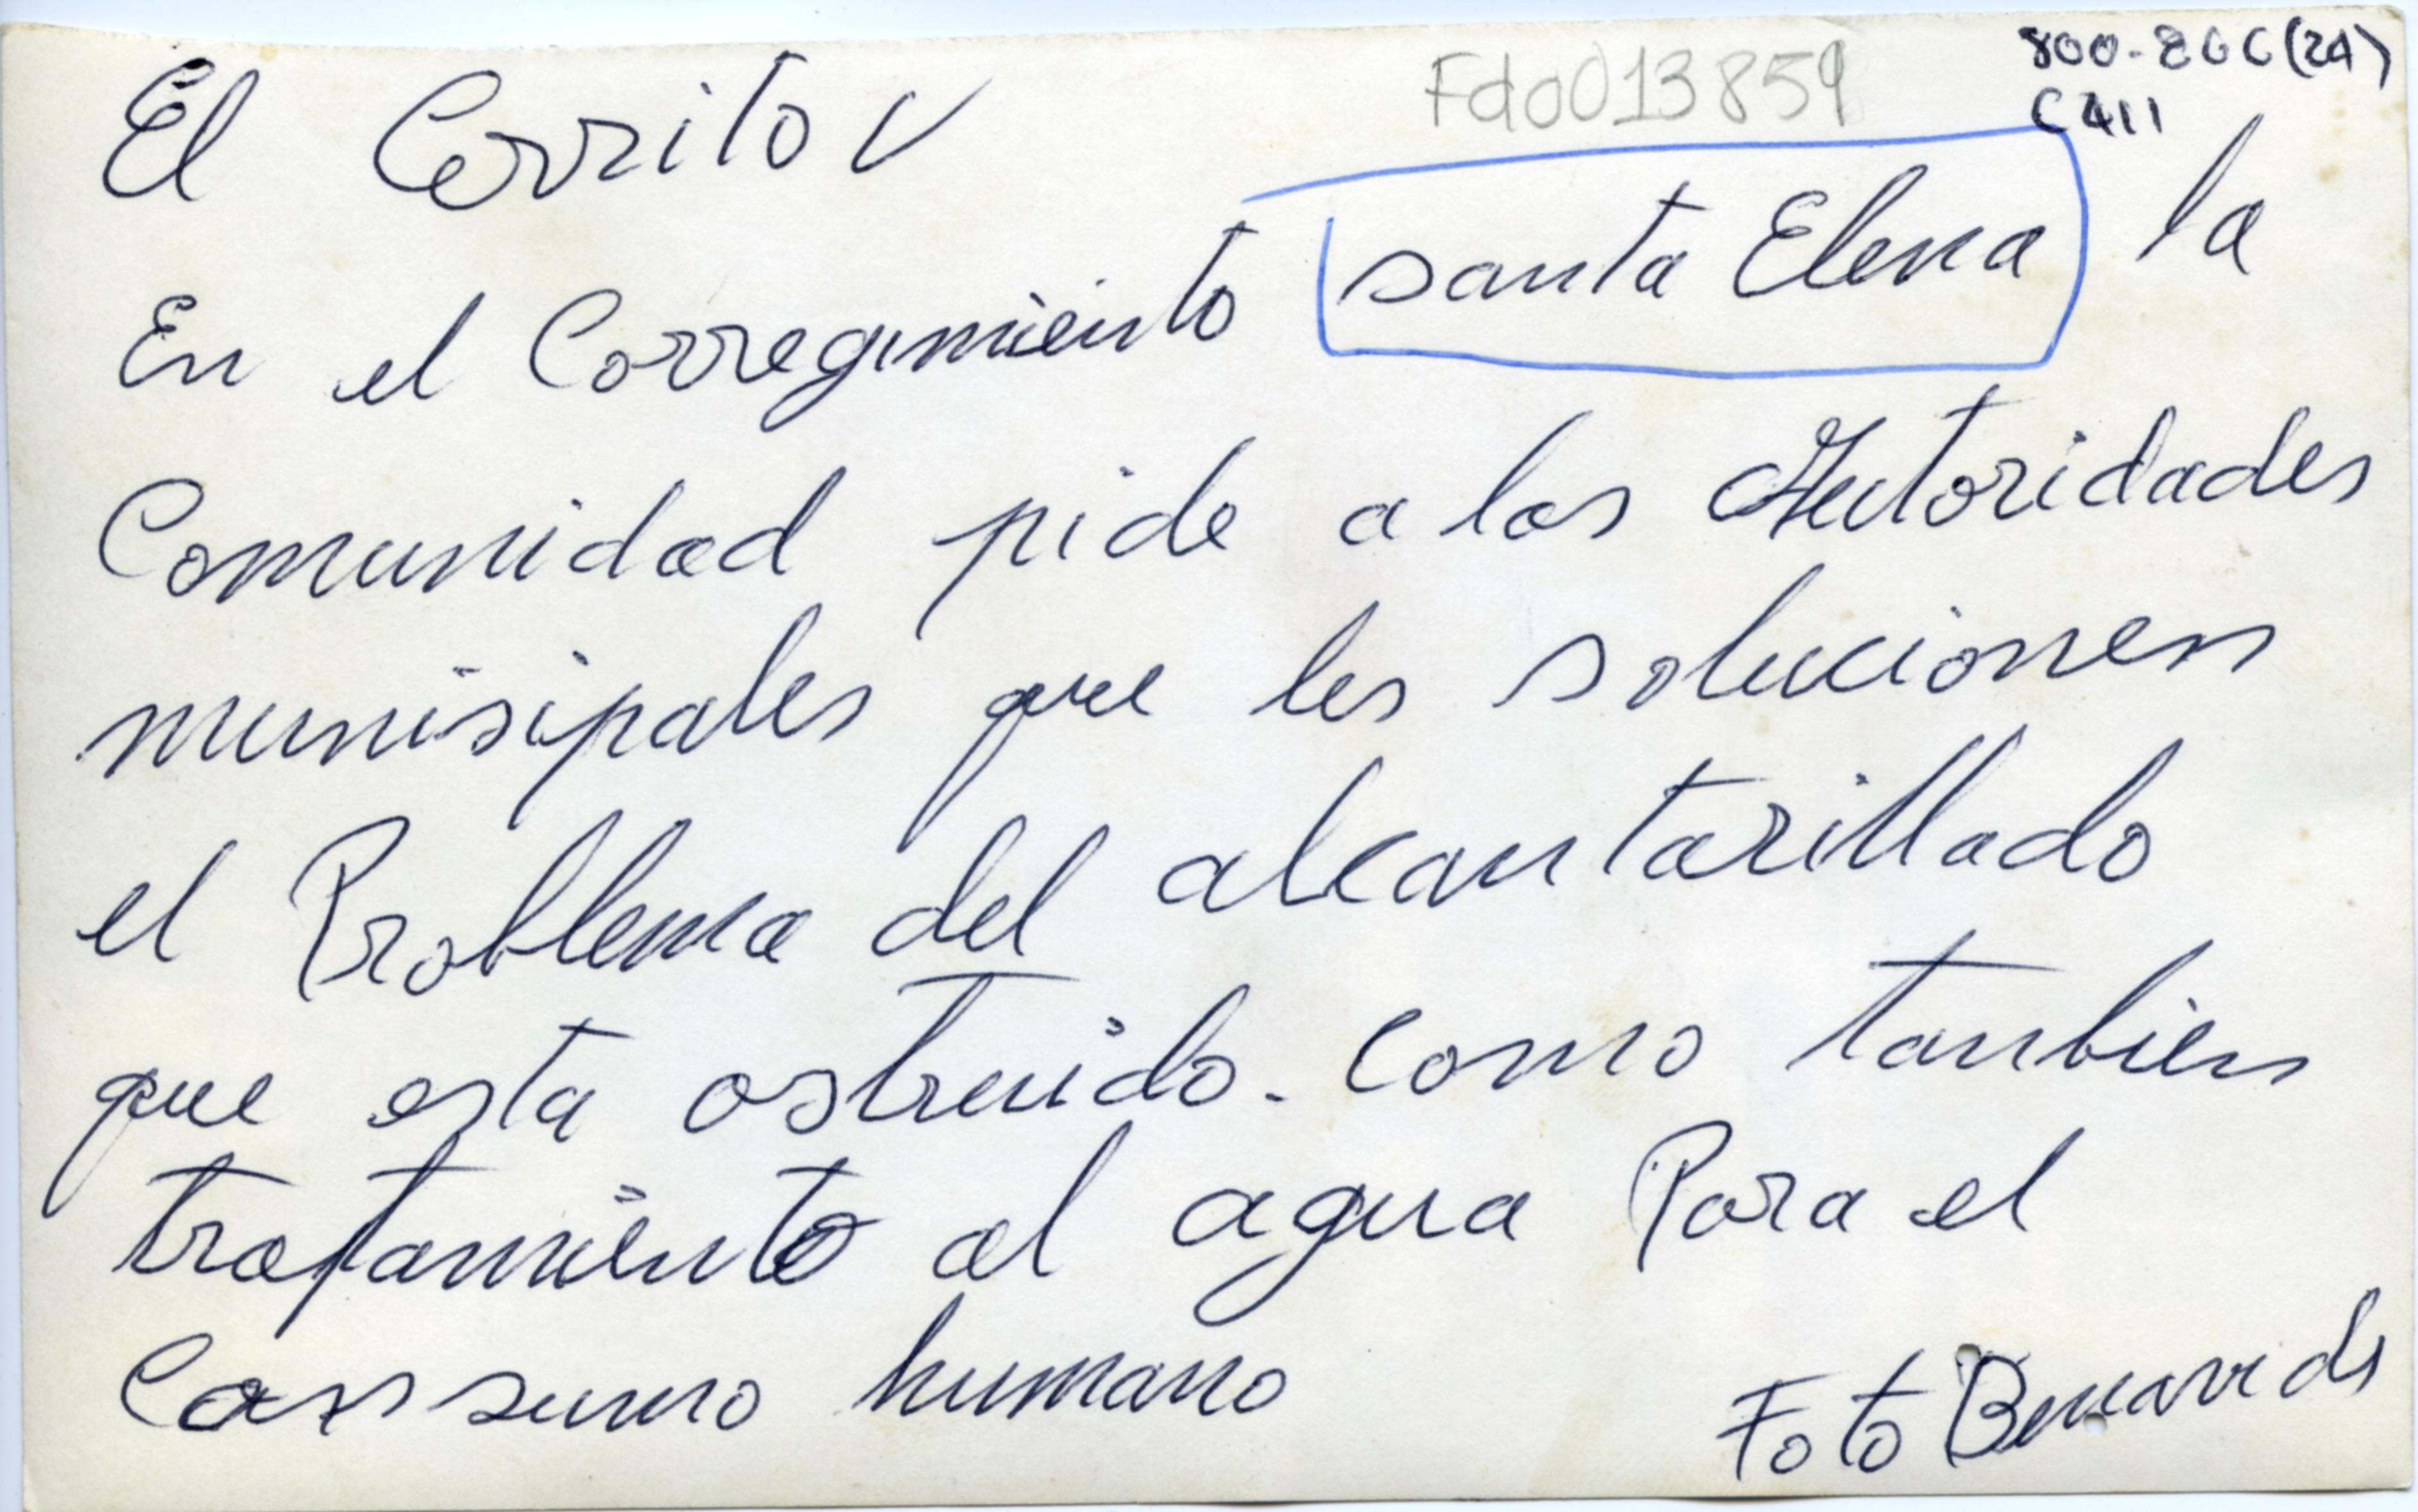 Fdo013859
800-866(24)
C411
El Cerrito V
En el Corregimiento santa Elena la
Comunidad pide a las Autoridades
munisipales que les solucionen
el Problema del alcantarillado
que esta ostruido. como tanbien
tratamiento al agua Para el
Consumo humano
Foto Benavides